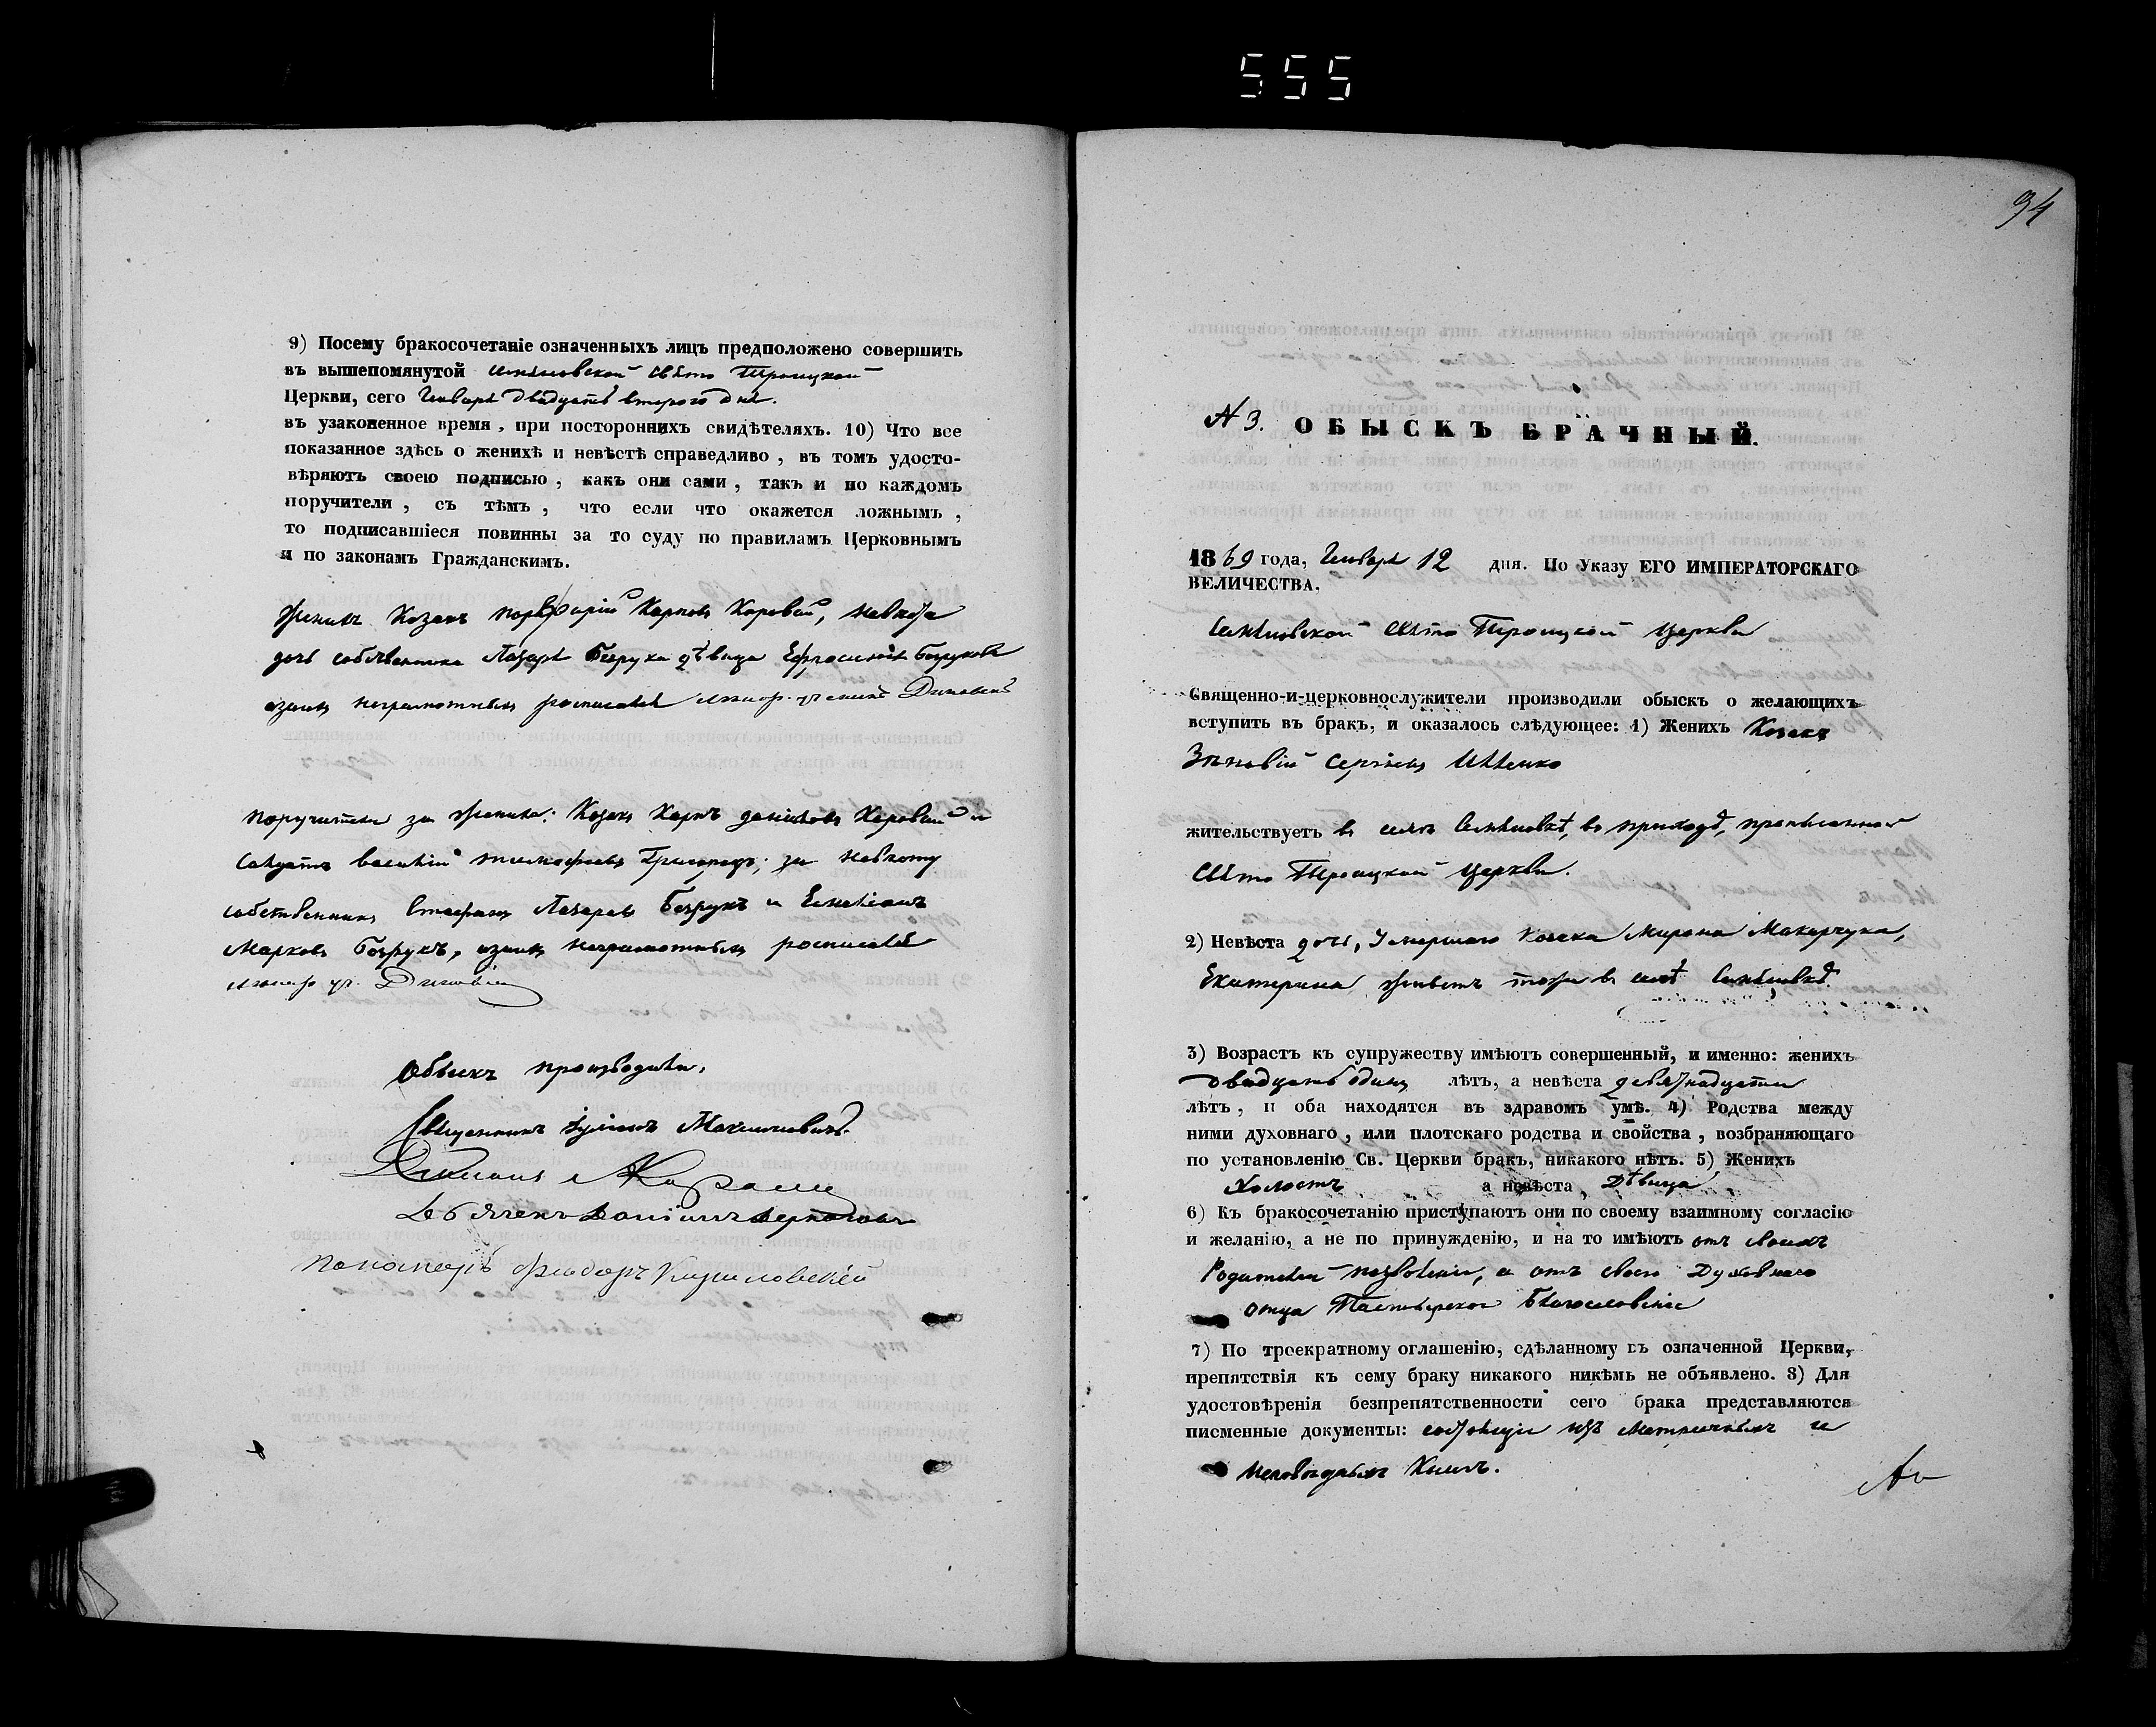 555
9) Посему бракосочетаніе означенныхъ лицъ предположено совершить
въ вышепомянутой Свято Троицкой
Церкви, сего Генваря двадцать второго дня.
въ узаконенное время, при постороннихъ свидѣтеляхъ. 10) Что все
показанное здѣсь о женихѣ и невѣстѣ справедливо, въ томъ удосто-
вѣряютъ своею подписью, какъ они сами, такъ и по каждомъ
поручители, съ тѣмъ, что если что окажется ложнымъ,
то подписавшіеся повинны за то суду по правиламъ Церковнымъ
и по законамъ Гражданскимъ.
Женихъ Козакъ Карповъ Коровай, невѣста
дочь собственника Лазаря Безрука дѣвица Ефросинія Безрукова
неграмотныхъ росписался
поручители за жениха: Козакъ Карпъ Коровай и
василій тимофеевъ за невѣсту
собственникъ Лазаревъ Безрукъ и
Марковъ Безрукъ, неграмотныхъ росписался
Обыскъ производили,
Священникъ Максимовичъ
пономарь Феодоръ
94
N 3. ОБЫСКЪ БРАЧНЫЙ.
1869 года, Генваря 12 дня. По Указу ЕГО ИМПЕРАТОРСКАГО
ВЕЛИЧЕСТВА,
Свято Троицкой церкви
Священно-и-церковнослужители производили обыскъ о желающихъ
вступить въ бракъ, и оказалось слѣдующее: 1) Женихъ Козакъ
Зѣновій
жительствуетъ въ селѣ въ приходѣ,
Свято Троицкой церкви.
2) Невѣста дочь, умершаго Козака Мирона Макарчука,
Екатерина живетъ тоже въ селѣ
3) Возрастъ къ супружеству имѣютъ совершенный, и именно: женихъ
двадцать одинъ лѣтъ, а невѣста девятнадцати
лѣтъ, и оба находятся въ здравомъ умѣ. 4) Родства между
ними духовнаго, или плотскаго родства и свойства, возбраняющаго
по установленію Св. Церкви бракъ, никакого нѣтъ. 5) Женихъ
Холостъ а невѣста Дѣвица
6) Къ бракосочетанію приступаютъ они по своему взаимному согласію
и желанію, а не по принужденію, и на то имѣютъ отъ своихъ
Родителей позволеніе, а отъ своего Духовнаго
отца Пастырское Благословеніе
7) По троекратному оглашенію, сдѣланному въ означенной Церкви,
препятствія къ сему браку никакого никѣмъ не объявлено. 8) Для
удостовѣренія безпрепятственности сего брака представляются
писменные документы: изъ Метрическихъ и
Исповѣдныхъ Книгъ.